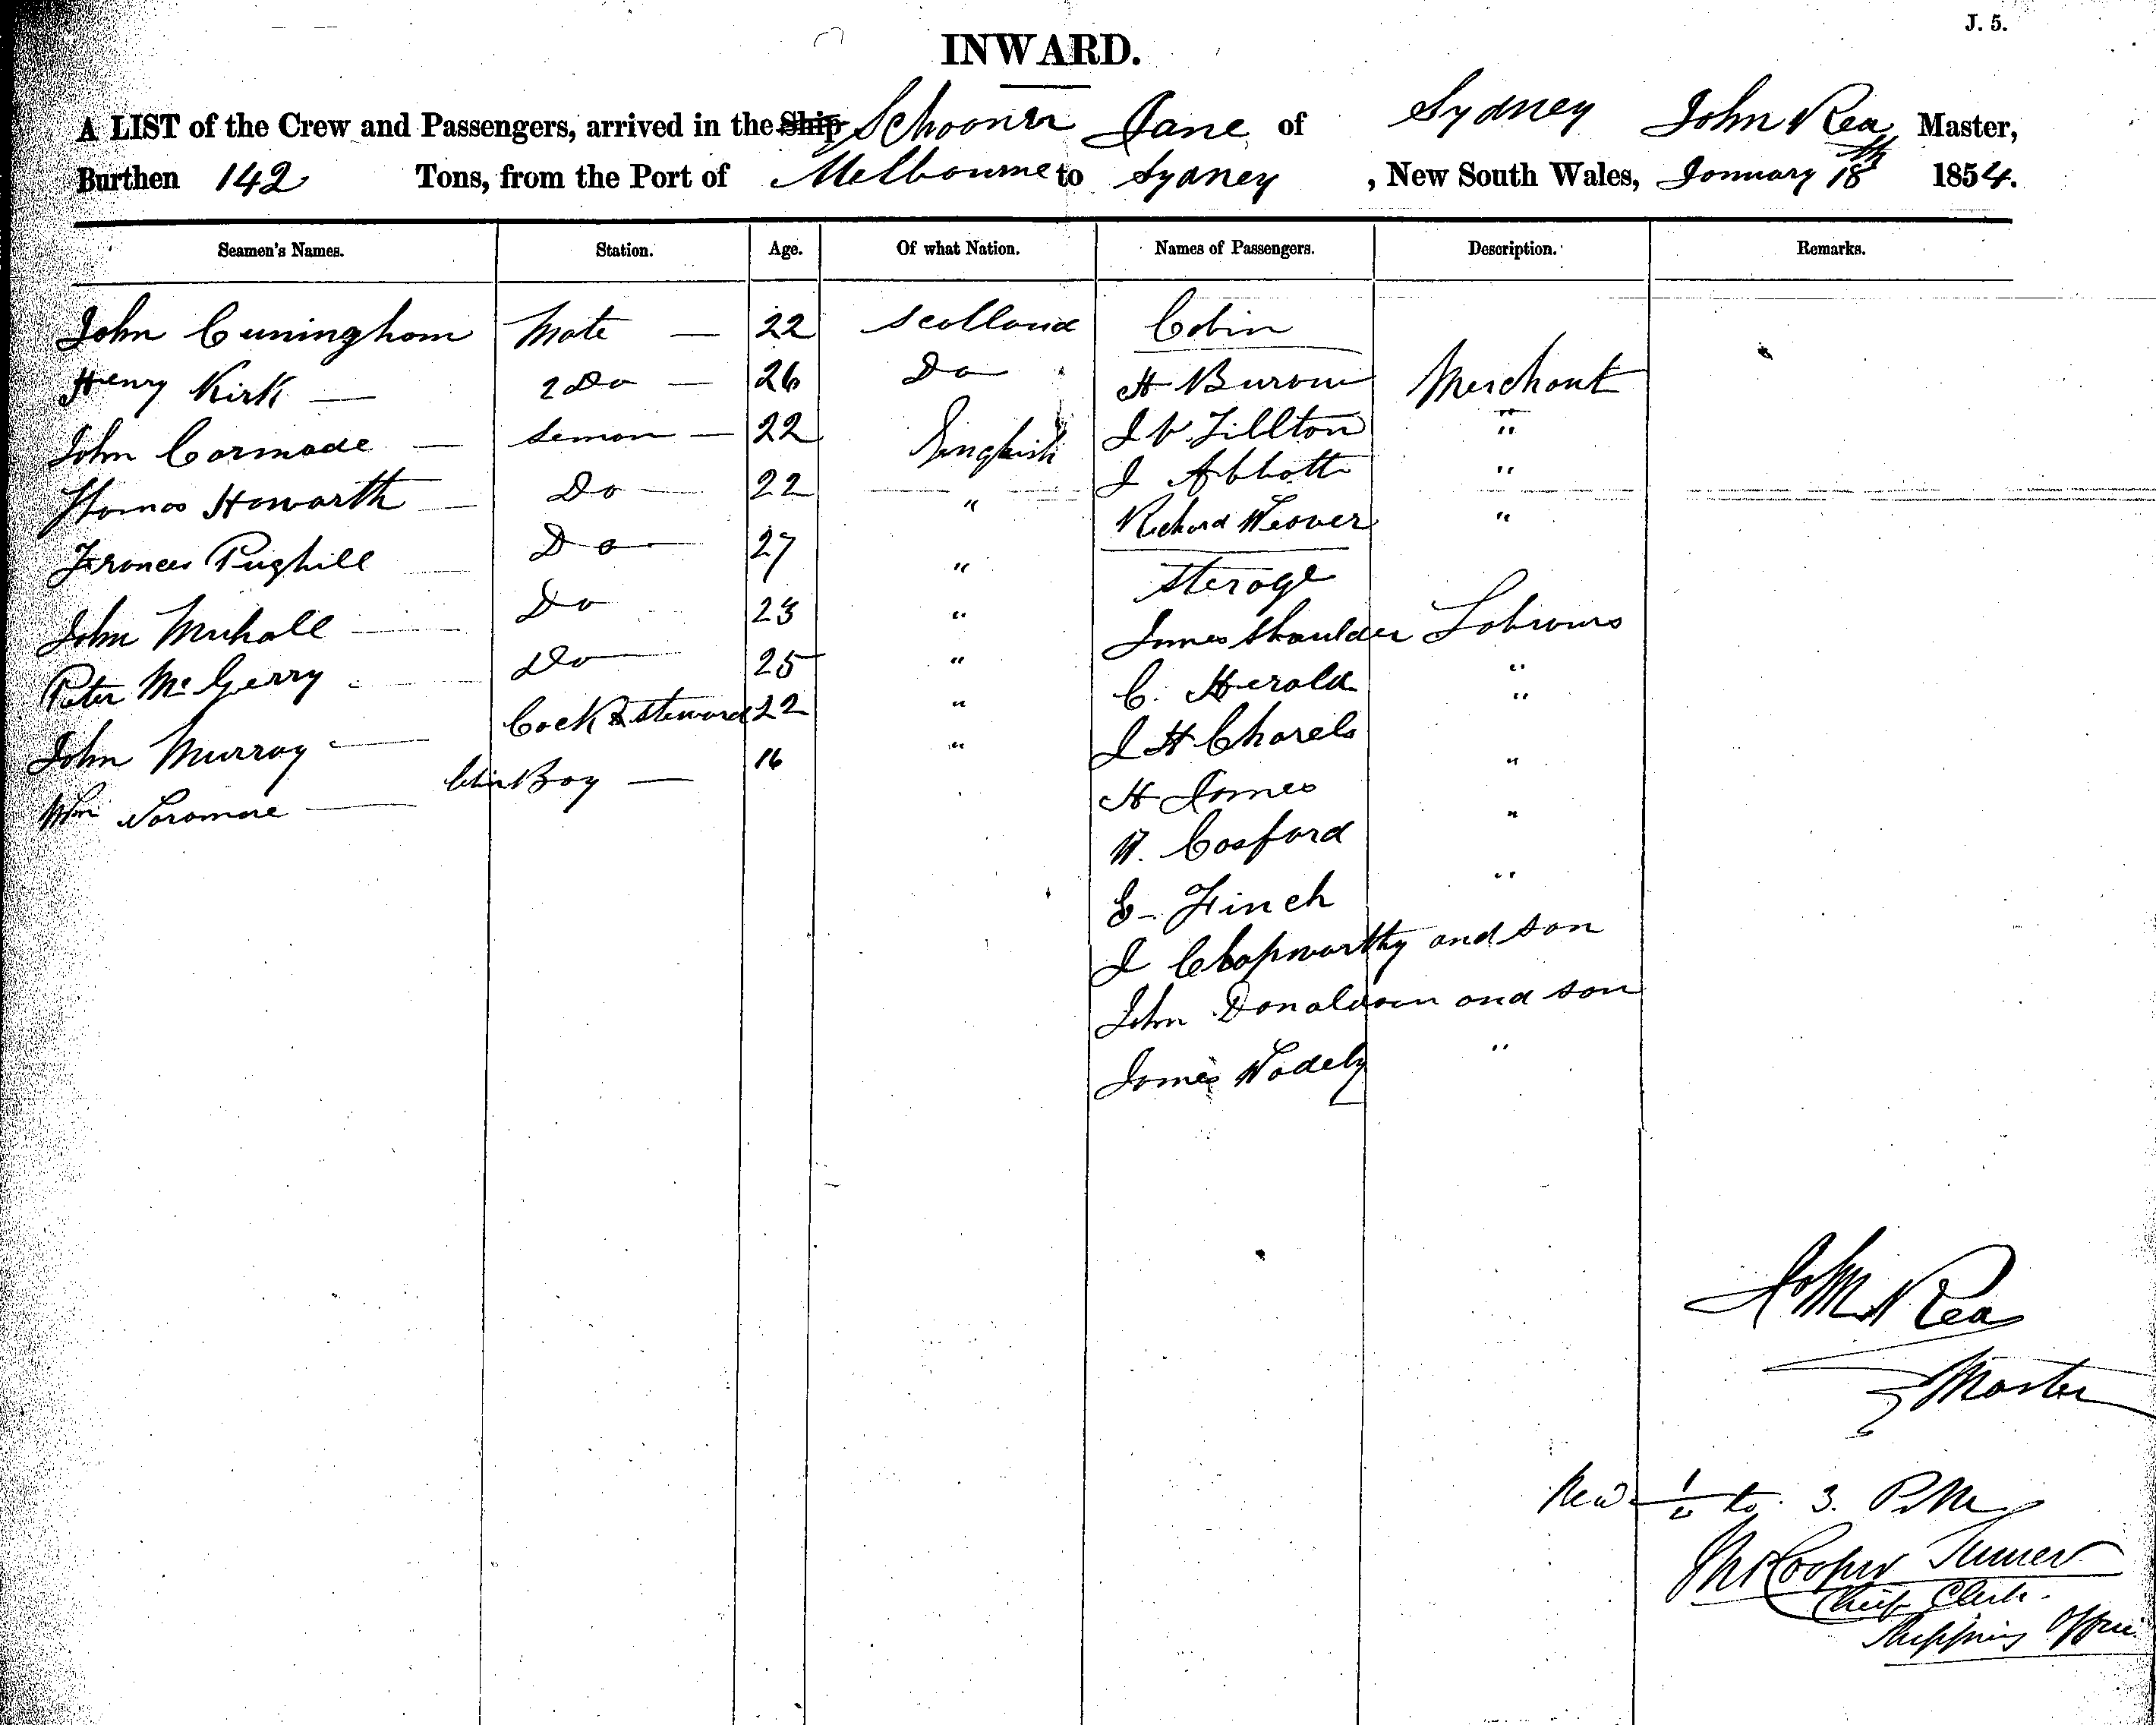 J. 5.
INWARD.
A LIST of the Crew and Passengers, arrived in the Ship Schooner Jane of Sydney John Rea, Master,
Burthen 142 Tons, from the Port of Melbourne to Sydney, New South Wales, January 18th 1854.
Seamen's Names. Station. Age. Of what Nation. Names of Passengers. Description. Remarks.
John Cuningham Mate — 22 Scotland Cabin
Henry Kirk — 2 Do — 26 Do H Burow Merchant
John Carmade — Seman — 22 English J V Tillton "
Thomas Howarth — Do — 22 " J Abbott "
Frances Pughill Do — 27 " Richard Weaver "
Sterage
John Muhall — Do 23 " James Shoulder Labrours
Peter Mc Gerry Do — 25 " C. Herald "
John Murray — Cook & Steward 22 " J H Charels "
Wm Boy — 16 " H James "
W. Cosford "
E- Finch "
J Clapworthy and son
John Donaldson and son
James Wadely "
John Rea
Master
to 3. PM
Cooper Turner
Chief Clerk.
Shipping Office